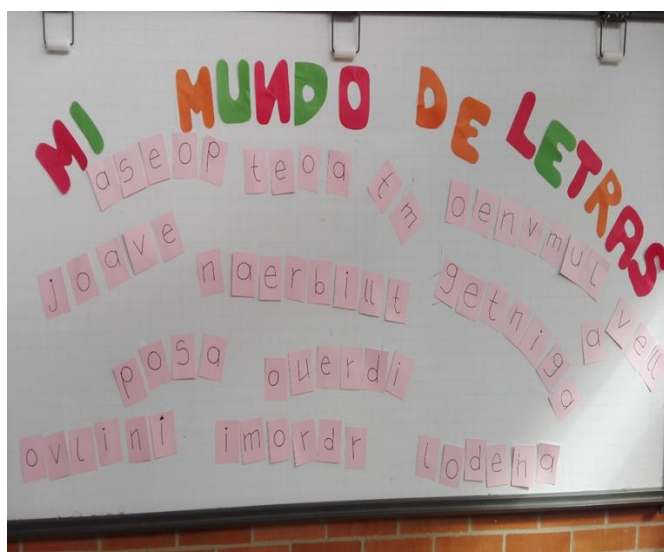 MI MUNDO DE LETRAS
aseop teoa tm oenvmul
joave naerbillt getniga avell
posa ouerdi
ovlini imordr lodeha